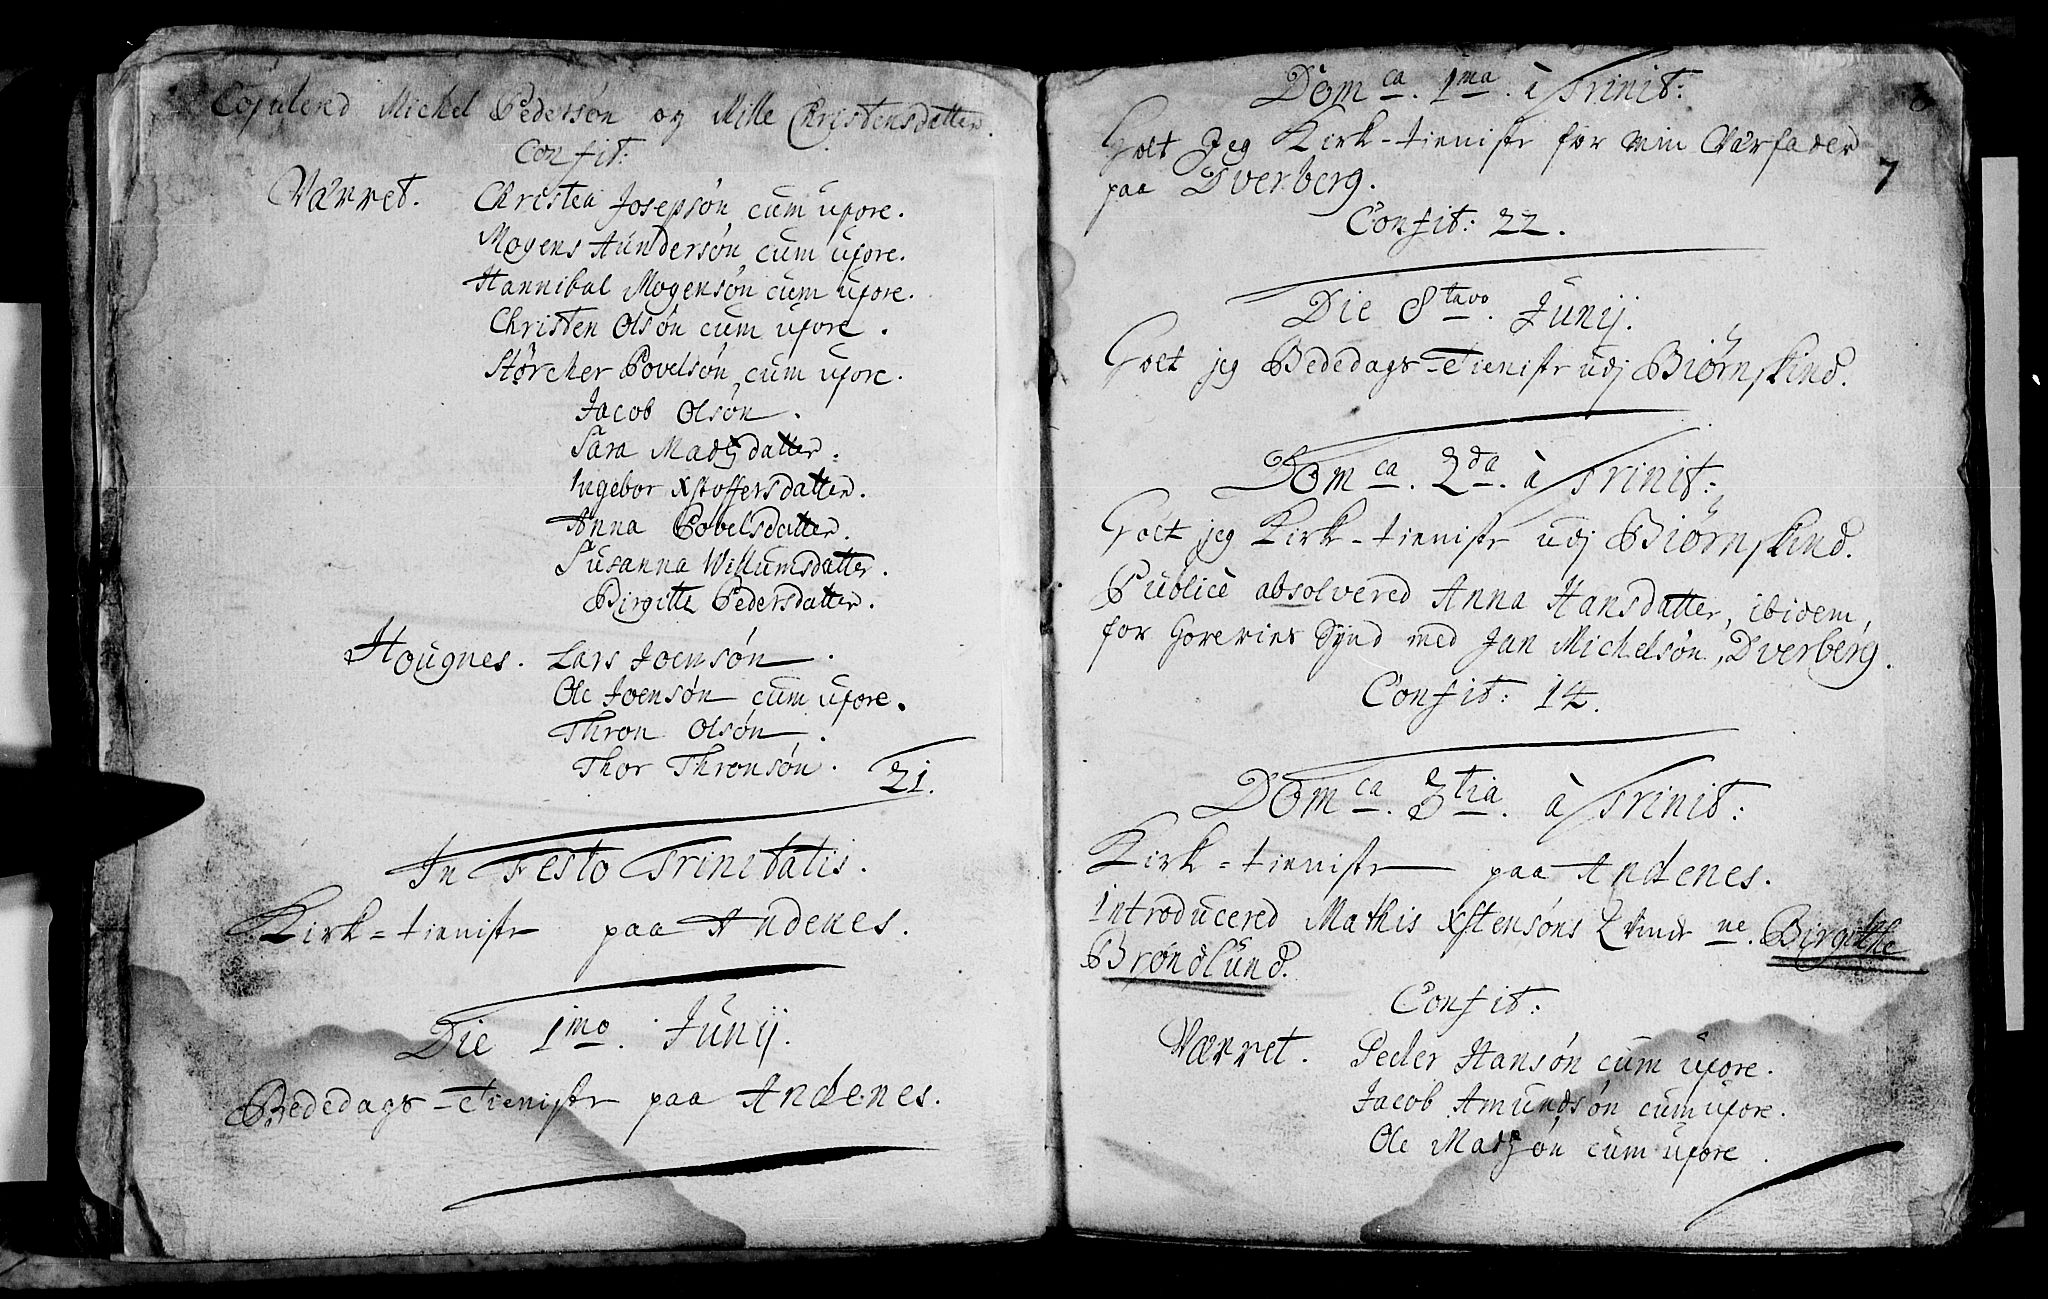 Copulered Michel Pedersøn og Mille Christensdatter.
Confit:
Værret. Christen Josepsøn cum uxore.
Mogens Aundersøn cum uxore.
Hannibal Mogensøn cum uxore.
Christen Olsøn cum uxore.
Størcker Povelsøn cum uxore.
Jacob Olsøn.
Sara Madzdatter.
Ingebor Xstoffersdatter.
Anna Povelsdatter.
Susanna Willumsdatter.
Birgitte Pedersdatter.
Hougnes. Lars Joensøn.
Ole Joensøn cum uxore.
Thron Olsøn.
Thor Thronsøn. 21.
In Festo Trinitatis.
Kirk-tieniste paa Andenes.
Die 1mo. Junij.
Bededags-Tieniste paa Andenes.
7
Domca. 1ma. à Trinit:
Holt Jeg Kirk-tieniste for min Værfader
paa Dverberg.
Confit: 22.
Die 8tavo. Junij.
Holt jeg Bededags-Tieniste udj Biørnskind.
Domca. 2da. à Trinit:
Holt jeg Kirk-tieniste udj Biørnskind.
Publicè absolvered Anna Hansdatter, ibidem,
for Horeries Synd med Jan Michelsøn, Dverberg.
Confit: 14.
Domca. 3tia. à Trinit:
Kirk-tieniste paa Andenes.
Introducered Mathis Xstensøns Qvinde ne. Birgitthe
Brøndlund.
Confit:
Værret. Peder Hansøn cum uxore.
Jacob Amundsøn cum uxore.
Ole Madzøn cum uxore.